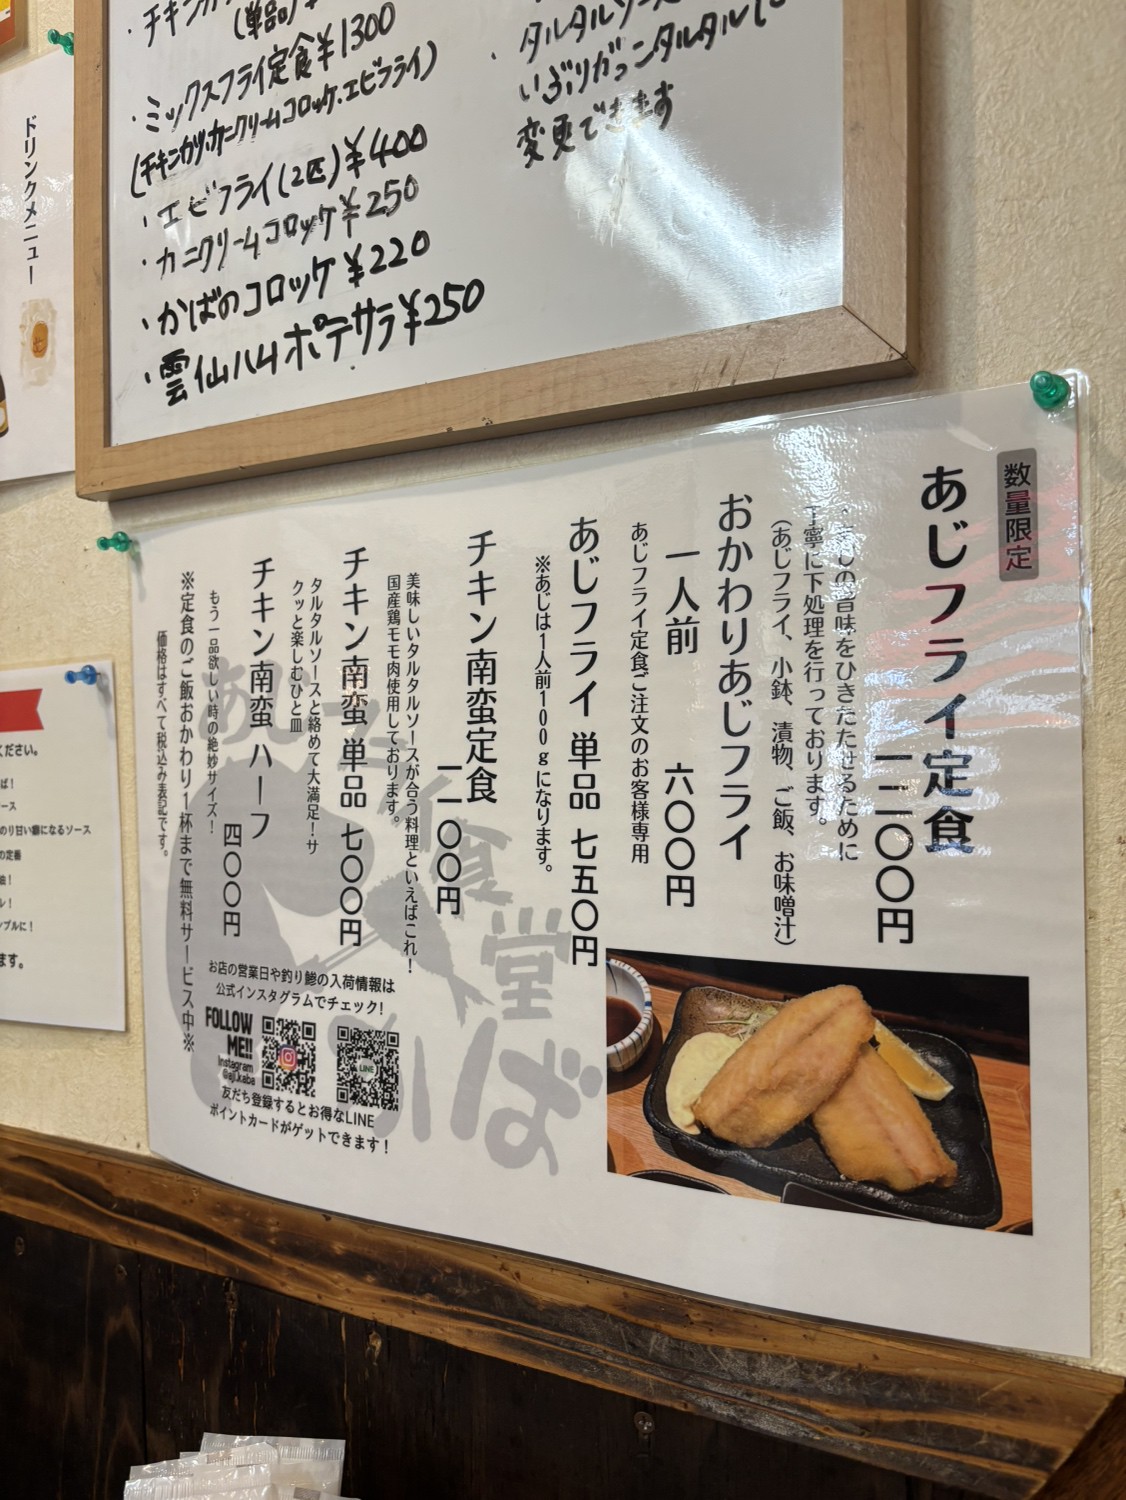 ドリンクメニュー
(単品)
・ミックスフライ定食¥1300
(チキンカツ.カニクリームコロッケ.エビフライ)
・エビフライ(2匹)¥400
・カニクリームコロッケ¥250
・かばのコロッケ¥220
・雲仙ハムポテサラ¥250
いぶりがっこタルタルに
変更できます
数量限定
あじフライ定食
一二〇〇円
の旨味をひきたたせるために
丁寧に下処理を行っております。
(あじフライ、小鉢、漬物、ご飯、お味噌汁)
おかわりあじフライ
一人前 六〇〇円
あじフライ定食ご注文のお客様専用
あじフライ 単品 七五〇円
※あじは1人前100gになります。
チキン南蛮定食
一二〇〇円
美味しいタルタルソースが合う料理といえばこれ!
国産鶏モモ肉使用しております。
チキン南蛮 単品 七〇〇円
タルタルソースと絡めて大満足!サ
クッと楽しむひと皿
チキン南蛮 ハーフ
四〇〇円
もう一品欲しい時の絶妙サイズ!
※定食のご飯おかわり1杯まで無料サービス中※
価格はすべて税込み表記です。
お店の営業日や釣り鯵の入荷情報は
公式インスタグラムでチェック!
FOLLOW
ME!!
Instagram
@aji.kaba
LINE
友だち登録するとお得なLINE
ポイントカードがゲットできます!
ください。
ば!
ース
のり甘い癖になるソース
の定番
油!
レ!
ンプルに!
ます。